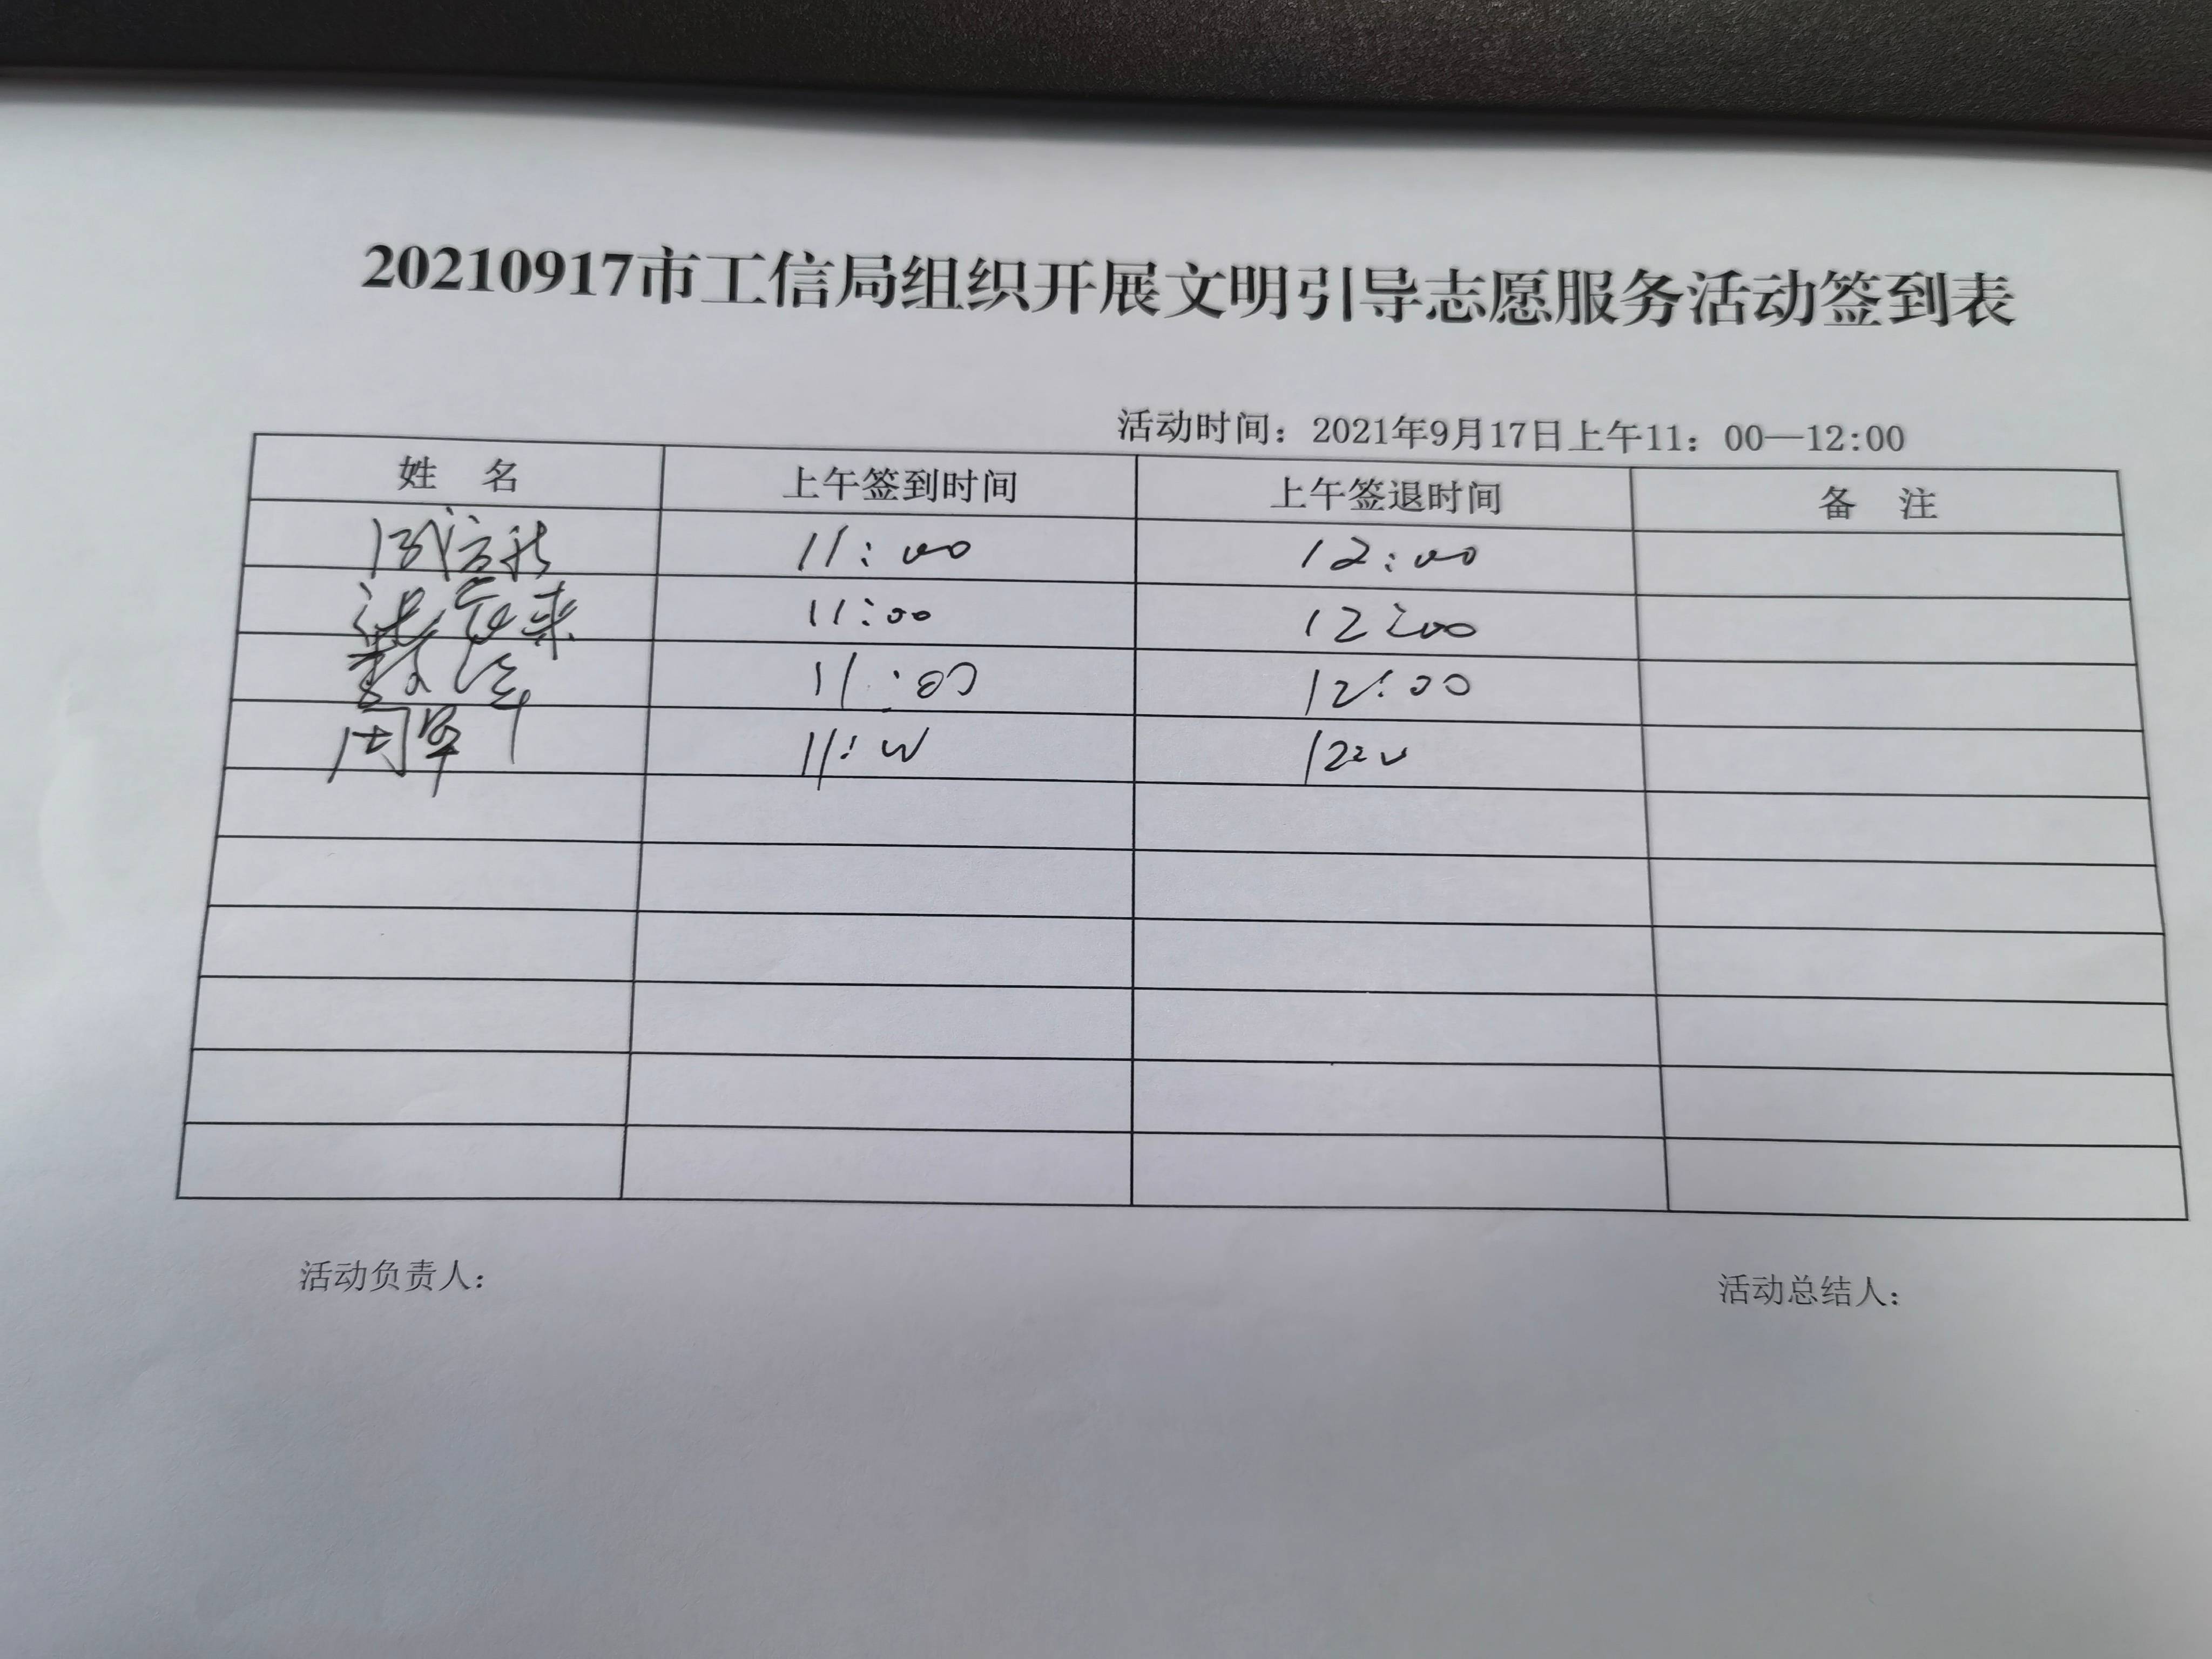 20210917市工信局组织开展文明引导志愿服务活动签到表
活动时间：2021年9月17日上午11：00—12:00
姓 名 上午签到时间 上午签退时间 备 注
11:00 12:00
11:00 12:00
11:00 12:00
周军 11:00 12:00
活动负责人： 活动总结人：